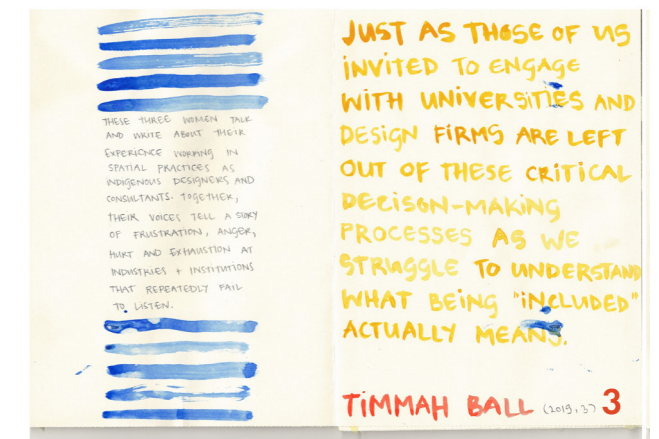 THESE THREE WOMEN TALK
AND WRITE ABOUT THEIR
EXPERIENCE WORKING IN
SPATIAL PRACTICES AS
INDIGENOUS DESIGNERS AND
CONSULTANTS. TOGETHER,
THEIR VOICES TELL A STORY
OF FRUSTRATION, ANGER,
HURT AND EXHAUSTION AT
INDUSTRIES + INSTITUTIONS
THAT REPEATEDLY FAIL
TO LISTEN.
JUST AS THOSE OF US
INVITED TO ENGAGE
WITH UNIVERSITIES AND
DESIGN FIRMS ARE LEFT
OUT OF THESE CRITICAL
DECISON-MAKING
PROCESSES AS WE
STRUGGLE TO UNDERSTAND
WHAT BEING "INCLUDED"
ACTUALLY MEANS.
TIMMAH BALL (2019, 37) 3